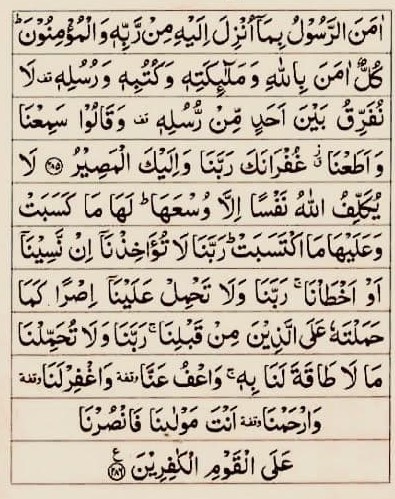 اٰمَنَ الرَّسُوْلُ بِمَاۤ اُنْزِلَ اِلَيْهِ مِنْ رَّبِّهٖ وَ الْمُؤْمِنُوْنَ ؕ
كُلٌّ اٰمَنَ بِاللّٰهِ وَ مَلٰٓئِكَتِهٖ وَ كُتُبِهٖ وَ رُسُلِهٖ قف لَا
نُفَرِّقُ بَيْنَ اَحَدٍ مِّنْ رُّسُلِهٖ قف وَ قَالُوْا سَمِعْنَا
وَ اَطَعْنَا ؗ غُفْرَانَكَ رَبَّنَا وَ اِلَيْكَ الْمَصِيْرُ ﴿۲۸۵﴾ لَا
يُكَلِّفُ اللّٰهُ نَفْسًا اِلَّا وُسْعَهَا ؕ لَهَا مَا كَسَبَتْ
وَ عَلَيْهَا مَا اكْتَسَبَتْ ؕ رَبَّنَا لَا تُؤَاخِذْنَاۤ اِنْ نَّسِيْنَاۤ
اَوْ اَخْطَاْنَا ۚ رَبَّنَا وَ لَا تَحْمِلْ عَلَيْنَاۤ اِصْرًا كَمَا
حَمَلْتَهٗ عَلَى الَّذِيْنَ مِنْ قَبْلِنَا ۚ رَبَّنَا وَ لَا تُحَمِّلْنَا
مَا لَا طَاقَةَ لَنَا بِهٖ ۚ وَ اعْفُ عَنَّا وقفة وَ اغْفِرْ لَنَا وقفة
وَ ارْحَمْنَا وقفة اَنْتَ مَوْلٰىنَا فَانْصُرْنَا
عَلَى الْقَوْمِ الْكٰفِرِيْنَ ﴿۲۸۶﴾ ع